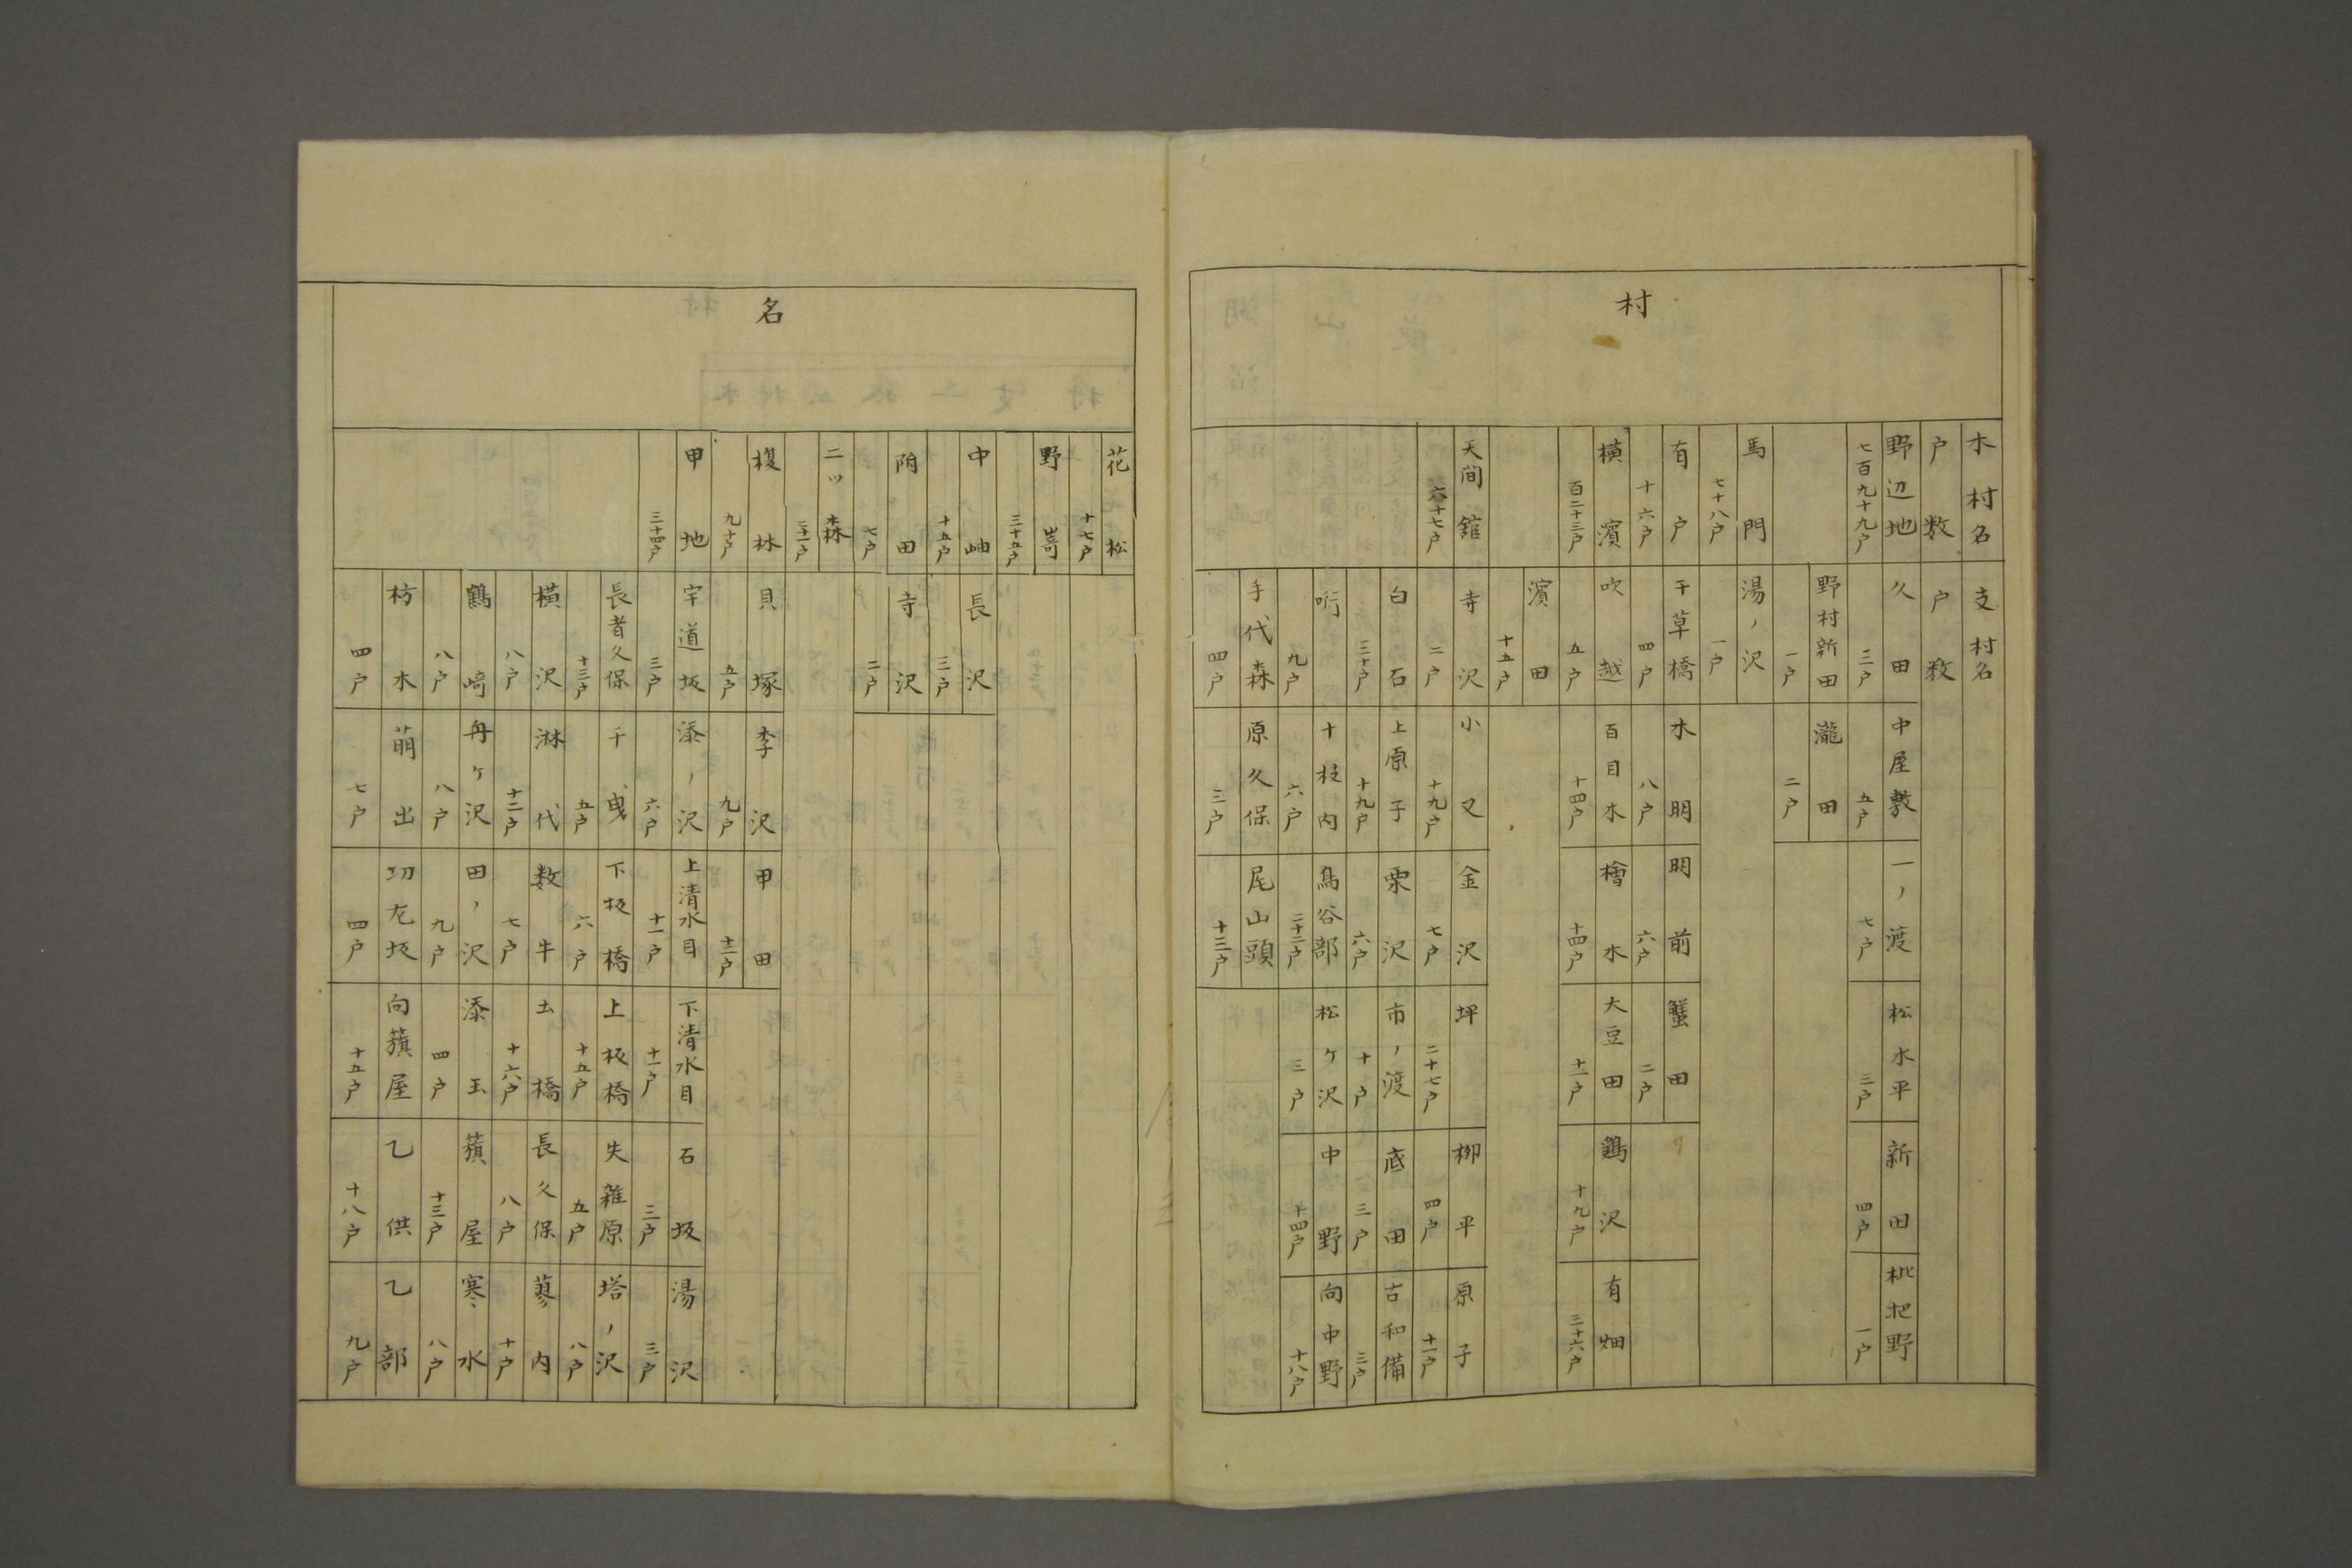 村
木村名 支村名
戸数 戸数
野辺地 久田 中屋敷 一ノ渡 松木平 新田 枇杷野
七百九十九戸 三戸 五戸 七戸 三戸 四戸 一戸
野村新田 瀧田
一戸 二戸
馬門 湯ノ沢
七十八戸 一戸
有戸 干草橋 木明 明前 蟹田
十六戸 四戸 八戸 六戸 二戸
横濱 吹越 百目木 檜木 大豆田 鶏沢 有畑
百二十三戸 五戸 十四戸 十四戸 十一戸 十九戸 三十六戸
濱田
十五戸
天間舘 寺沢 小又 金沢 坪 柳平 原子
六十七戸 二戸 十九戸 七戸 二十七戸 四戸 十一戸
白石 上原子 栗沢 市ノ渡 底田 古和備
三十戸 十九戸 六戸 十戸 三戸 三戸
哘 十枝内 鳥谷部 松ヶ沢 中野 向中野
九戸 六戸 二十二戸 三戸 十四戸 十八戸
手代森 原久保 尾山頭
四戸 三戸 十三戸
名
花松
十七戸
野嵜
三十五戸
中岫 長沢
十五戸 三戸
附田 寺沢
七戸 二戸
二ッ森
二十一戸
榎林 貝塚 李沢 甲田
九十戸 五戸 九戸 十二戸
甲地 宇道坂 添ノ沢 上清水目 下清水目 石坂 湯沢
三十四戸 三戸 六戸 十一戸 十一戸 三戸 三戸
長者久保 千曳 下板橋 上板橋 失雑原 塔ノ沢
十三戸 五戸 六戸 十五戸 五戸 八戸
横沢 淋代 数牛 土橋 長久保 蓼内
八戸 十二戸 七戸 十六戸 八戸 十戸
鶴崎 舟ヶ沢 田ノ沢 添玉 籏屋 寒水
八戸 八戸 九戸 四戸 十三戸 八戸
枋木 萠出 切左坂 向籏屋 乙供 乙部
四戸 七戸 四戸 十五戸 十八戸 九戸